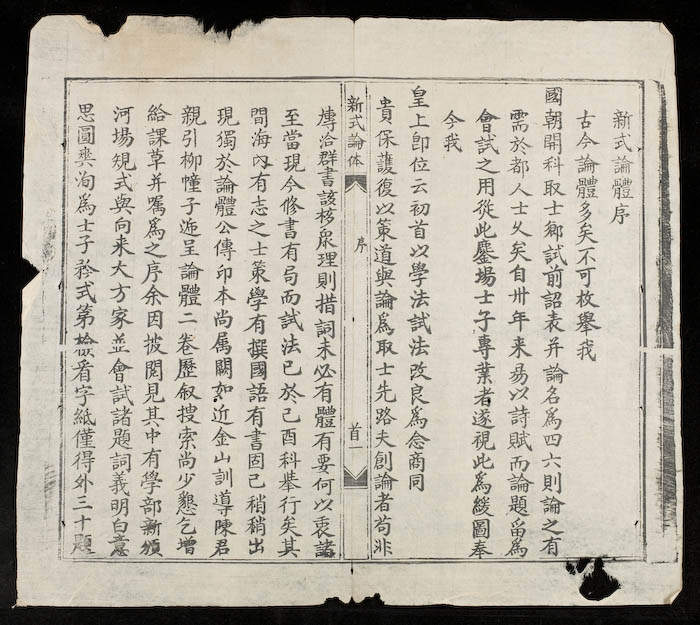 新式論體序
古今論體多矣不可枚舉我
國朝開科取士鄉試前詔表并論名爲四六則論之有
需於都人士久矣自卅年来易以詩賦而論題畱爲
會試之用從此鏖場士子專業者遂視此爲緩圖奉
今我
皇上卽位云初首以學法試法改良爲念商同
貴保護復以策道與論爲取士先路夫創論者苟非
新式論体
序
首一
慱洽群書該移衆理則措詞未必有體有要何以衷諸
至當現今修書有局而試法已於己酉科举行矣其
間海內有志之士策學有撰國語有書固已稍稍出
現獨於論體公傳印本尚属闕如近金山訓導陳君
親引柳幢子迤呈論體二卷歷叙搜索尚少懇乞增
給課草并嘱爲之序余因披閱見其中有學部新頒
河塲䂓式與向来大方家並會試諸題詞義明白意
思圓奕洵爲士子矜式第檢看字紙僅得外三十題